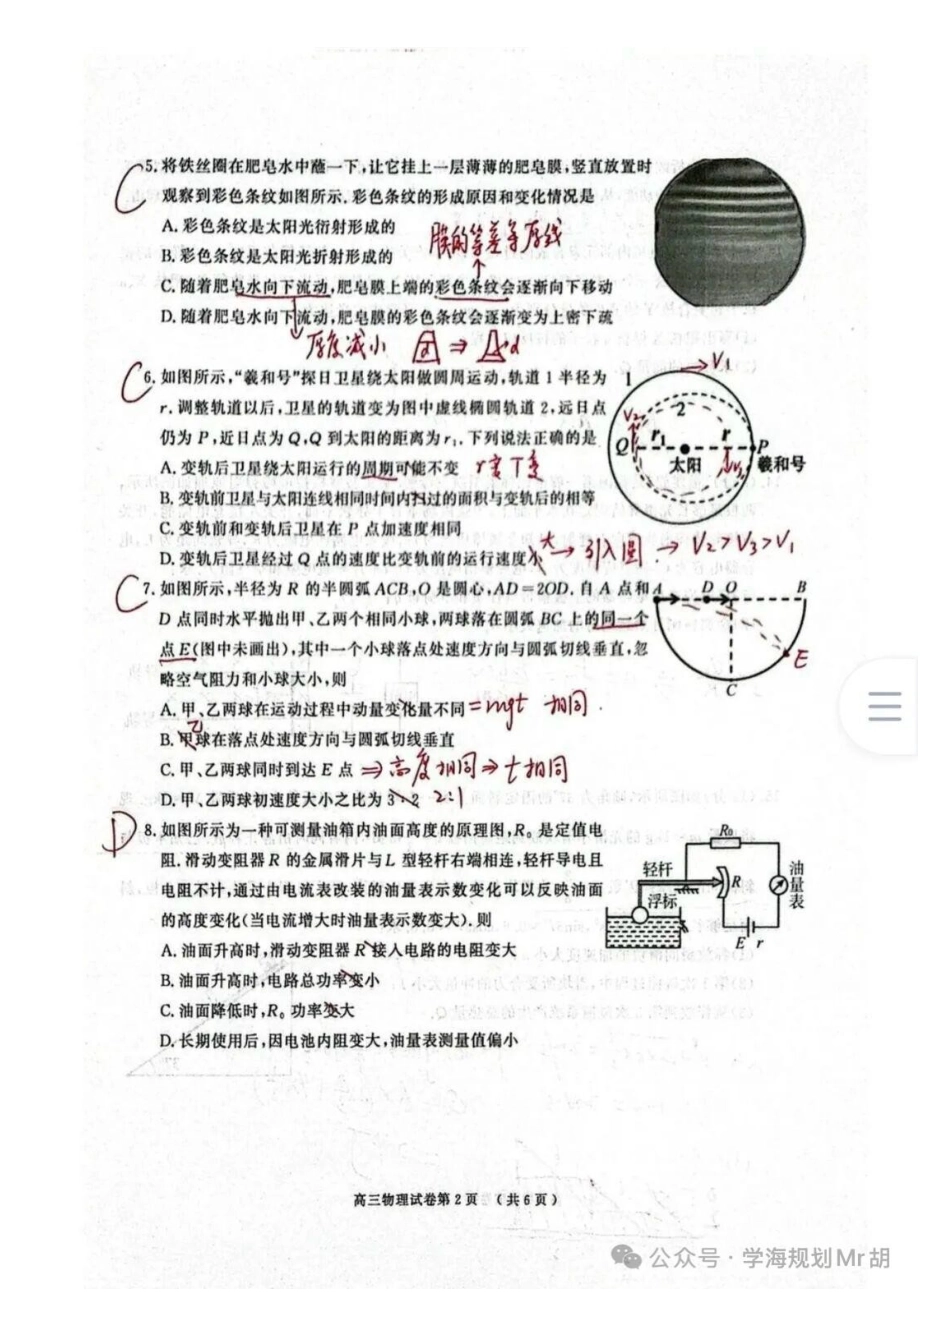 C 5.将铁丝圈在肥皂水中蘸一下,让它挂上一层薄薄的肥皂膜,竖直放置时
观察到彩色条纹如图所示.彩色条纹的形成原因和变化情况是
A.彩色条纹是太阳光衍射形成的
膜的等差等厚线
B.彩色条纹是太阳光折射形成的
C.随着肥皂水向下流动,肥皂膜上端的彩色条纹会逐渐向下移动
D.随着肥皂水向下流动,肥皂膜的彩色条纹会逐渐变为上密下疏
厚度减小 α ⇒ α
C 6.如图所示,“羲和号”探日卫星绕太阳做圆周运动,轨道1半径为
r.调整轨道以后,卫星的轨道变为图中虚线椭圆轨道2,远日点
仍为P,近日点为Q,Q到太阳的距离为r₁.下列说法正确的是
A.变轨后卫星绕太阳运行的周期可能不变 r变T变
B.变轨前卫星与太阳连线相同时间内扫过的面积与变轨后的相等
C.变轨前和变轨后卫星在P点加速度相同
D.变轨后卫星经过Q点的速度比变轨前的运行速度小 大→引入圆→V₂>V₃>V₁
1 V₁
2
V₂
Q r₁ r P
太阳 V₃ 羲和号
C 7.如图所示,半径为R的半圆弧ACB,O是圆心,AD=2OD.自A点和
D点同时水平抛出甲、乙两个相同小球,两球落在圆弧BC上的同一个
点E(图中未画出),其中一个小球落点处速度方向与圆弧切线垂直,忽
略空气阻力和小球大小,则
A.甲、乙两球在运动过程中动量变化量不同 =mgt 相同.
乙
B.甲球在落点处速度方向与圆弧切线垂直
C.甲、乙两球同时到达E点 ⇒高度相同→t相同
D.甲、乙两球初速度大小之比为3:2 2:1
A D O B
E
C
D 8.如图所示为一种可测量油箱内油面高度的原理图,R₀是定值电
阻.滑动变阻器R的金属滑片与L型轻杆右端相连,轻杆导电且
电阻不计,通过由电流表改装的油量表示数变化可以反映油面
的高度变化(当电流增大时油量表示数变大).则
A.油面升高时,滑动变阻器R接入电路的电阻变大
B.油面升高时,电路总功率变小
C.油面降低时,R₀功率变大
D.长期使用后,因电池内阻变大,油量表测量值偏小
R₀
轻杆
R
油量表
浮标
E r
高三物理试卷第2页 (共6页)
公众号·学海规划Mr胡